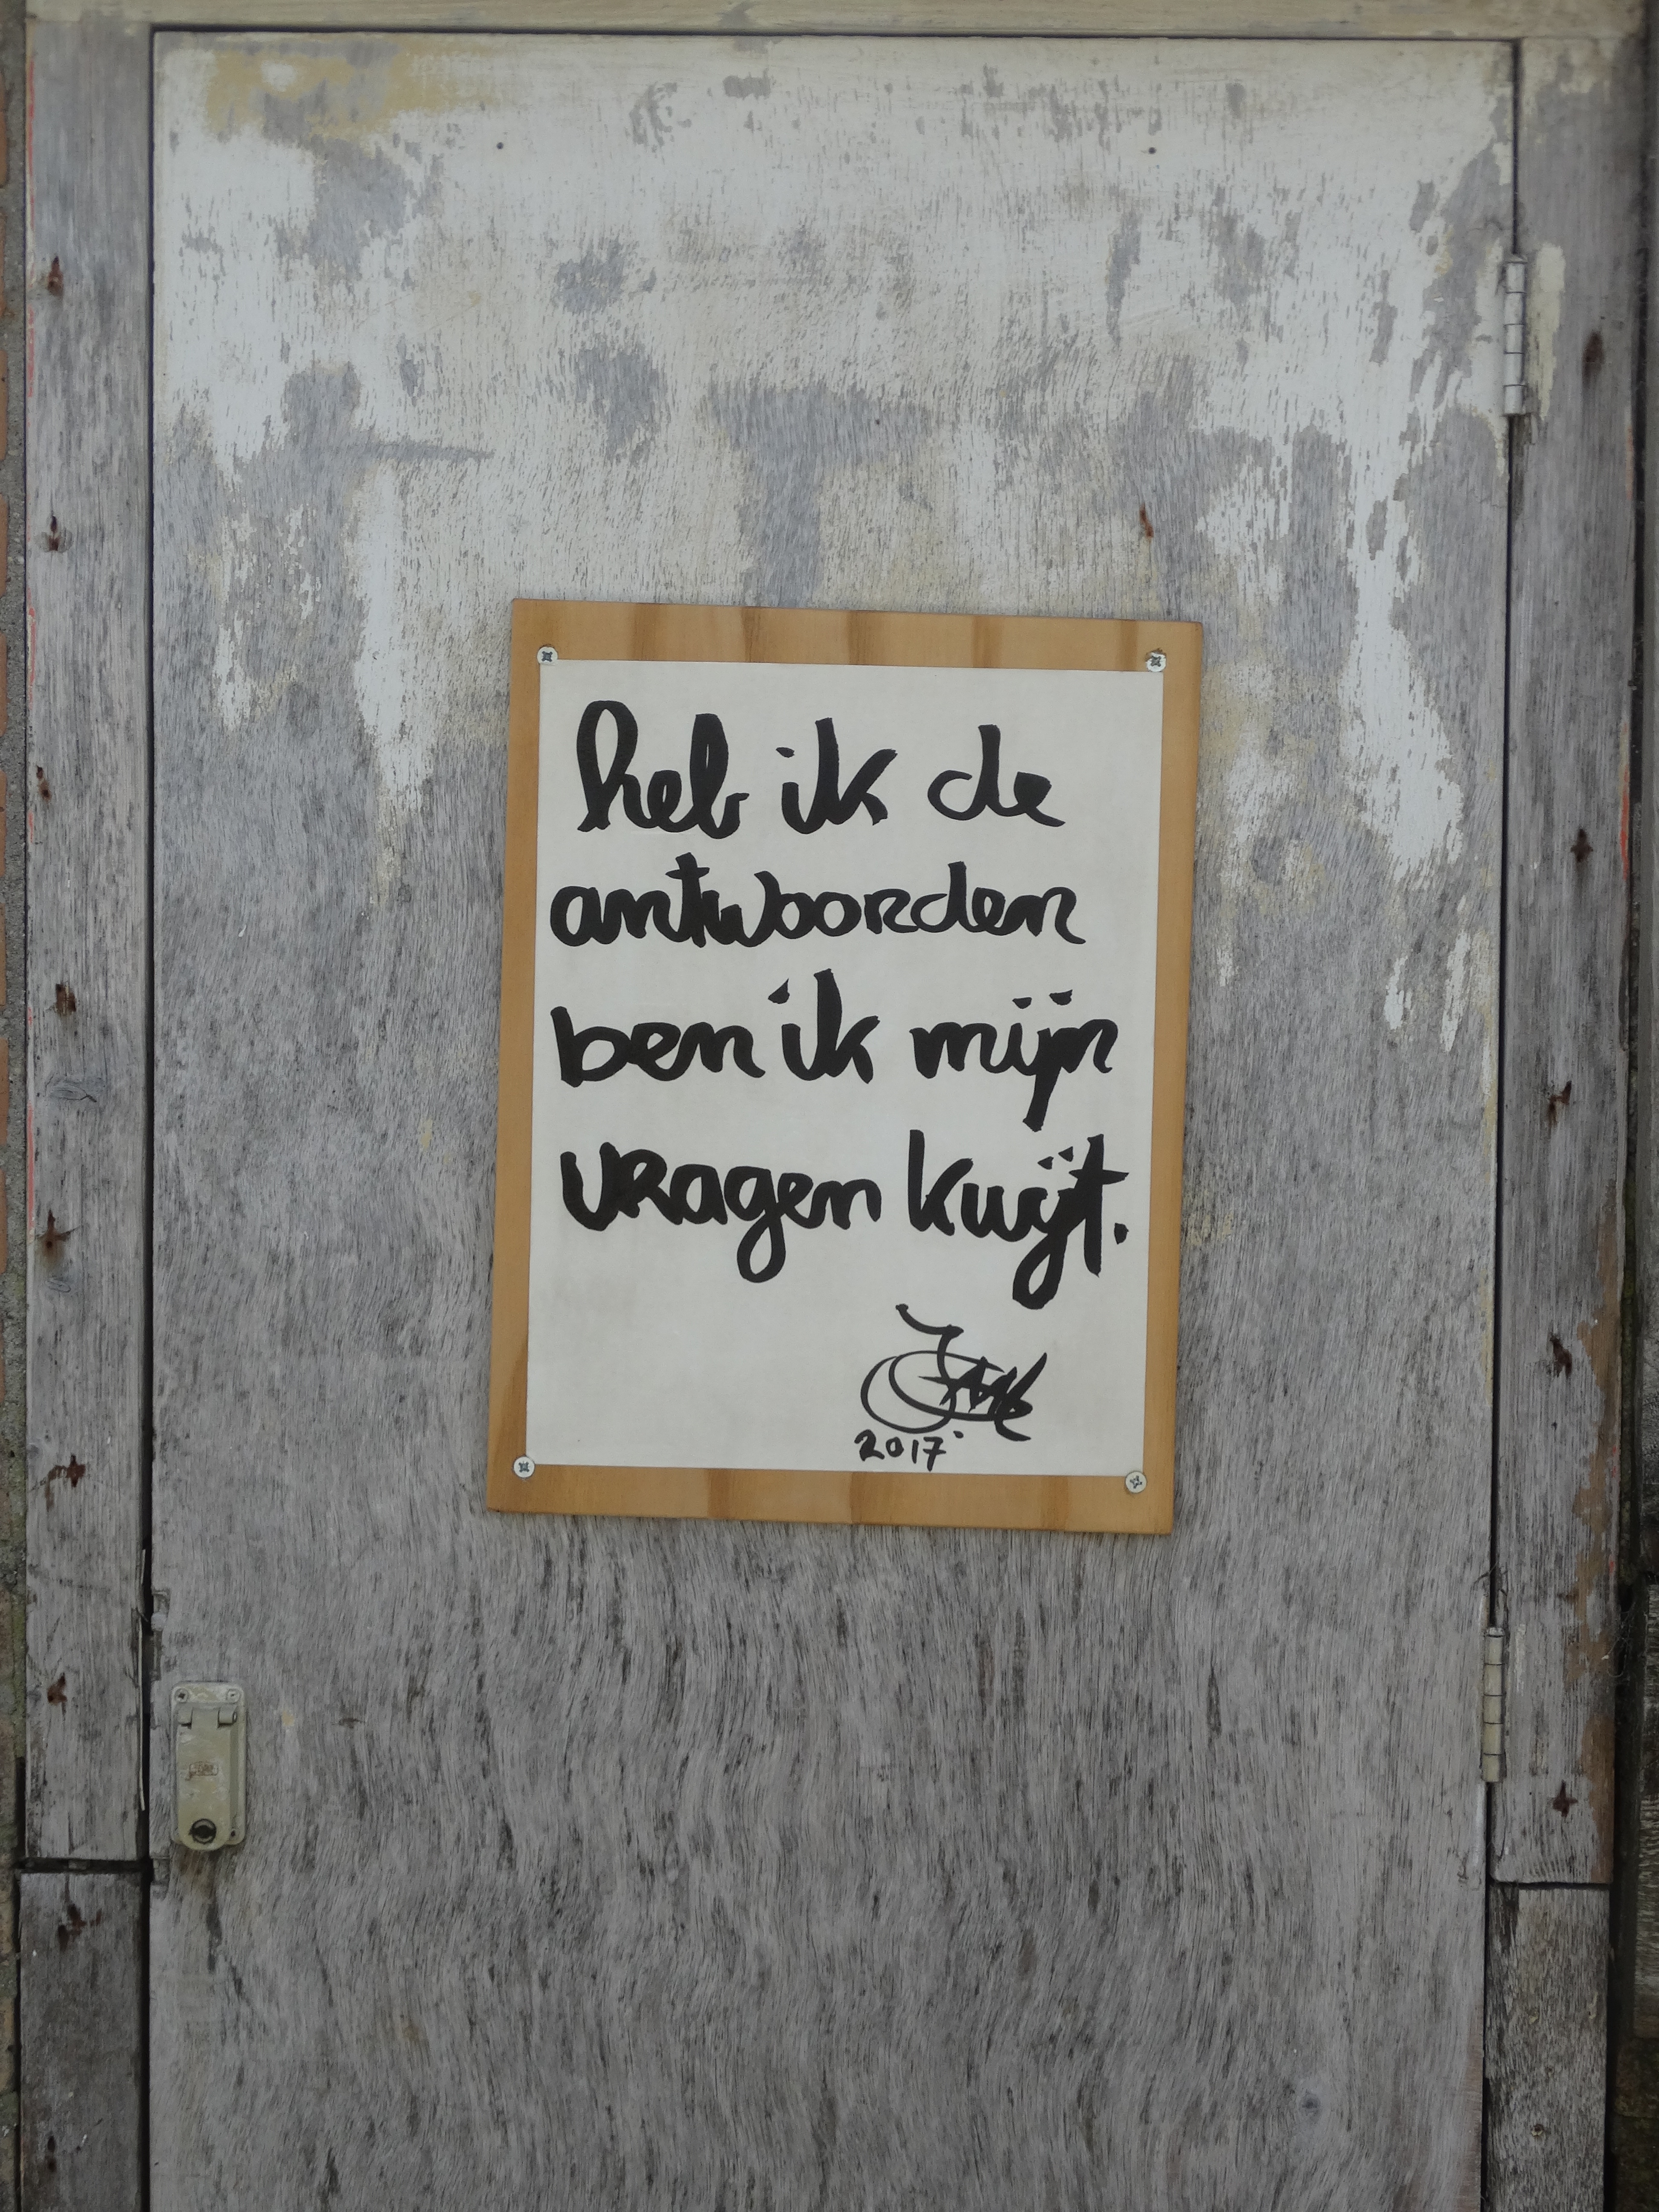 heb ik de
antwoorden
ben ik mijn
vragen kwijt.
2017